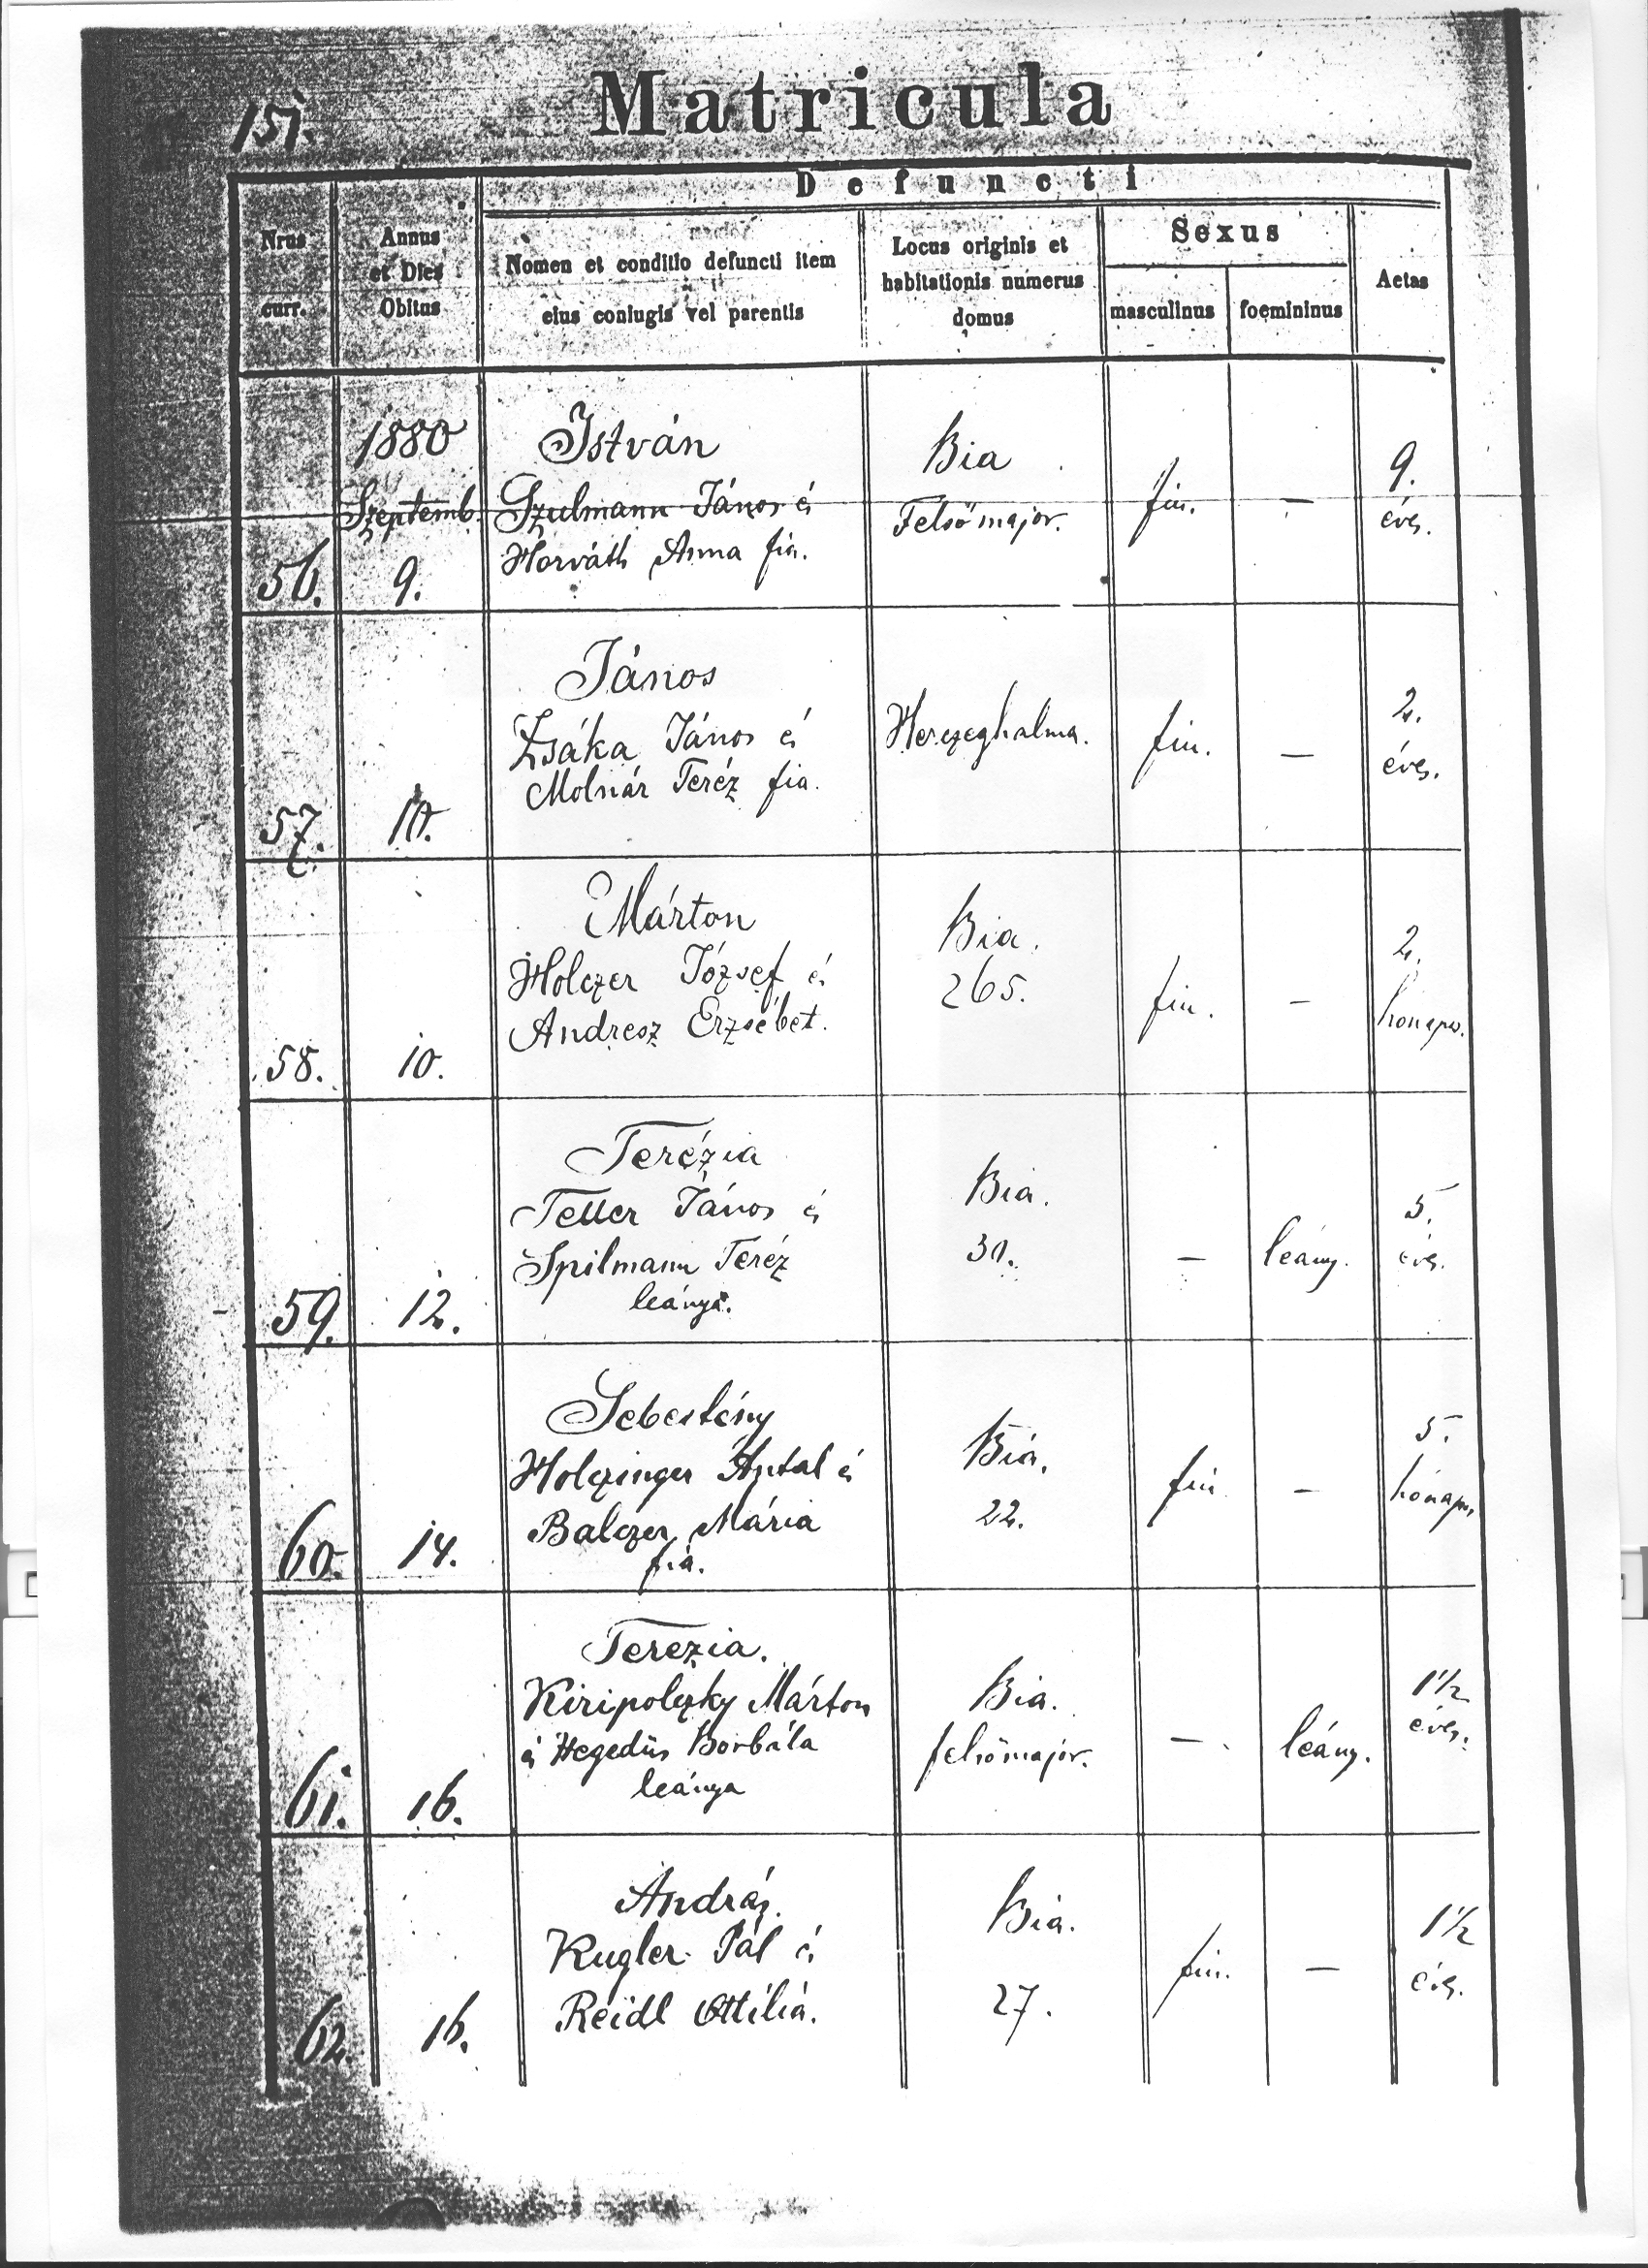 151.
Matricula
Defuncti
Nrus
curr.
Annus
et Dies
Obitus
Nomen et conditio defuncti item
eius coniugis vel parentis
Locus originis et
habitationis numerus
domus
Sexus
masculinus
foemininus
Aetas
1880
Szeptemb.
56.
9.
István
Szulmann János és
Horváth Anna fia.
Bia
Felsőmajor.
fiu.
—
9.
éves.
57.
10.
János
Zsáka János és
Molnár Teréz fia.
Herczeghalma.
fiu.
—
2.
éves.
58.
10.
Márton
Holczer József és
Andresz Erzsébet.
Bia.
265.
fiu.
—
2.
hónapos.
59.
12.
Terézia
Teller János és
Spilmann Teréz
leánya.
Bia.
30.
—
leány.
5.
éves.
60.
14.
Sebestény
Holczinger Antal és
Balczer Mária
fia.
Bia.
22.
fiu
—
5.
hónapos.
61.
16.
Terezia.
Kiripolczky Márton
és Hegedüs Borbála
leánya
Bia.
felsőmajor.
—
leány.
1 1/2
éves.
62.
16.
András.
Kugler Pál és
Reidl Ottilia.
Bia.
27.
fiu.
—
1 1/2
éves.